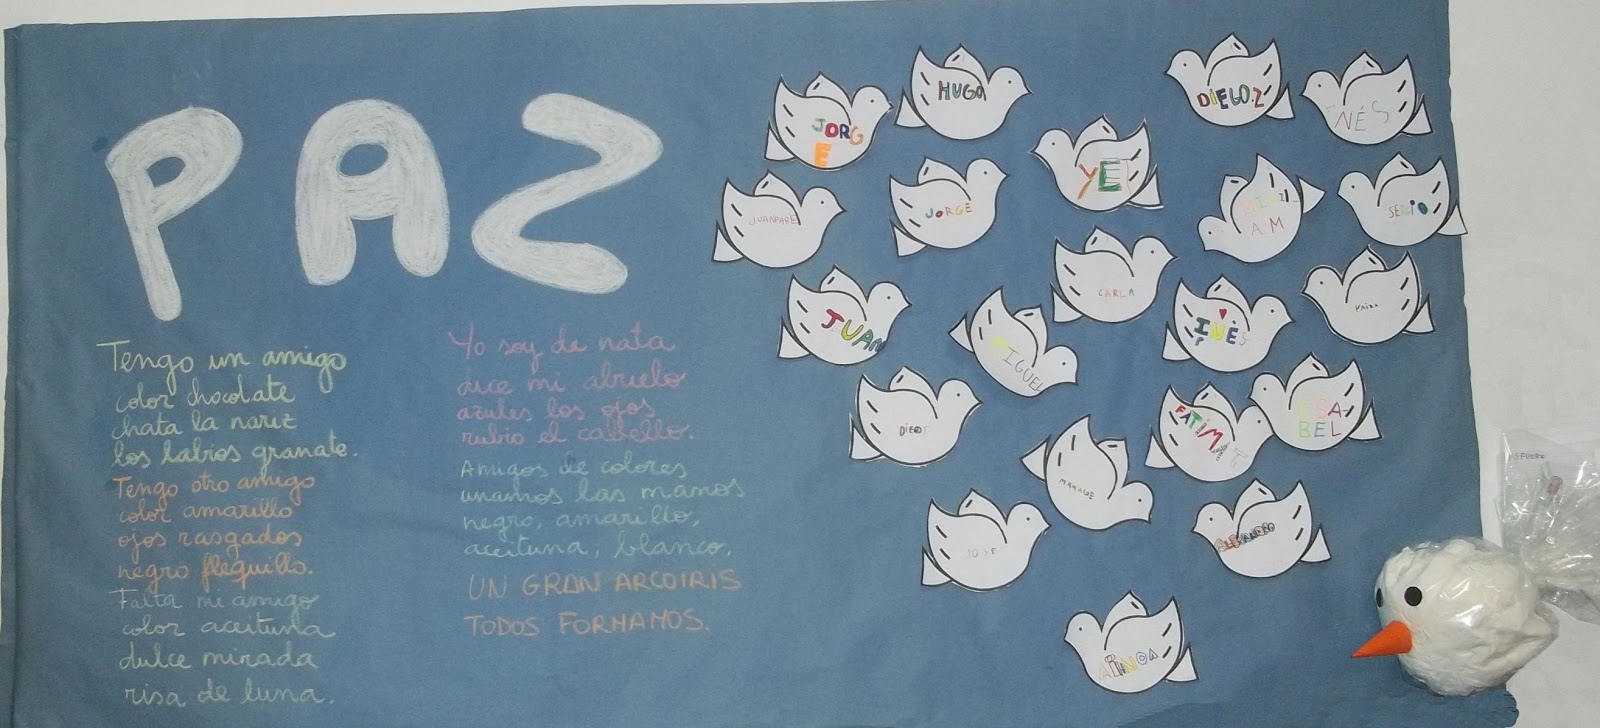 PAZ
Tengo un amigo
color chocolate
chata la nariz
los labios granate.
Tengo otro amigo
color amarillo
ojos rasgados
negro flequillo.
Falta mi amigo
color aceituna
dulce mirada
risa de luna.
Yo soy de nata
dice mi abuelo
azules los ojos
rubio el cabello.
Amigos de colores
unamos las manos
negro, amarillo,
aceituna, blanco.
UN GRAN ARCOIRIS
TODOS FORMAMOS.
JORG
E
HUGO
DIEGO.Z
INÉS
YEI
JORGE
SERGIO
CARLA
JUAN
MIGUEL
INÉS
FATIM
ISA-
BEL
JOSE
ALEJANDRO
AINOA